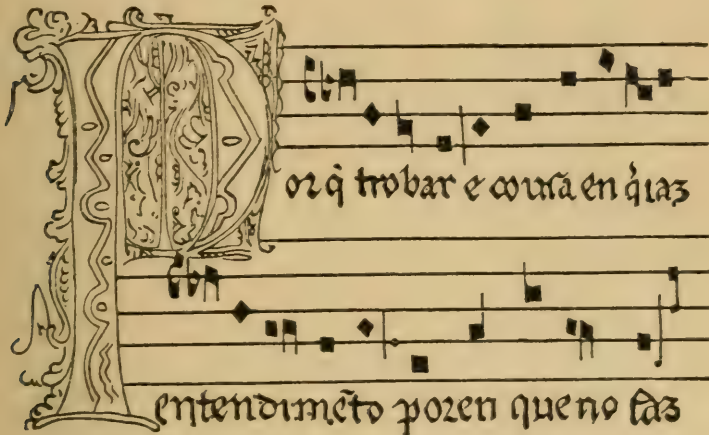 Porq̇ trobar e cousa en q̇iaz
entendimẽto poren queno faz